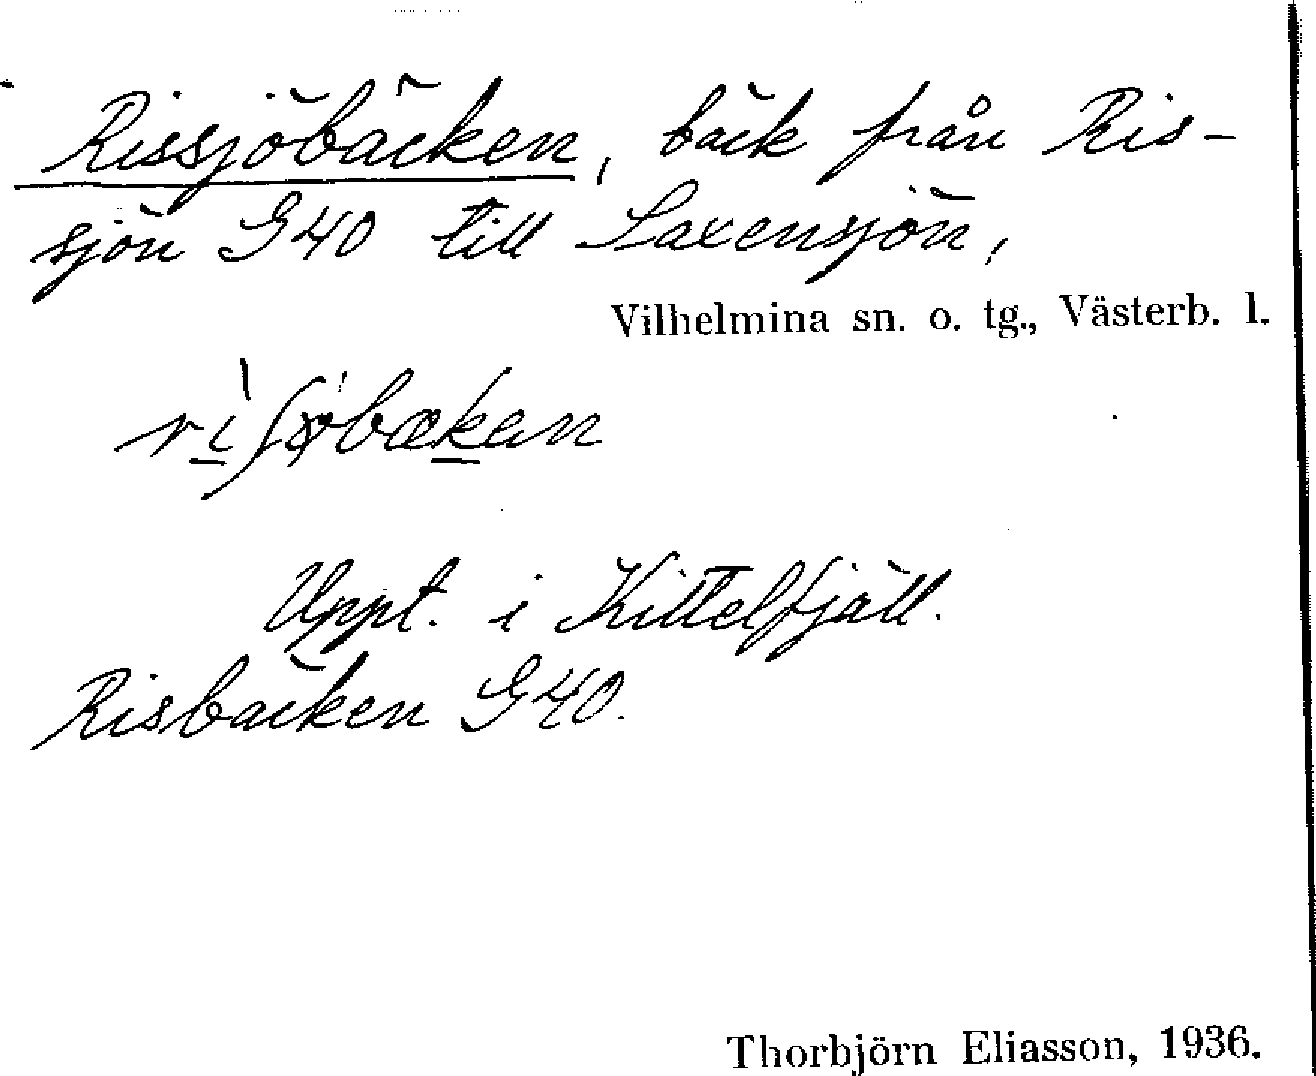 Rissjöbäcken, bäck från Ris-
sjön G40 till Saxensjön,
Vilhelmina sn. o. tg., Västerb. l.
Uppt. i Kittelfjäll.
Risbäcken G40.
Thorbjörn Eliasson, 1936.